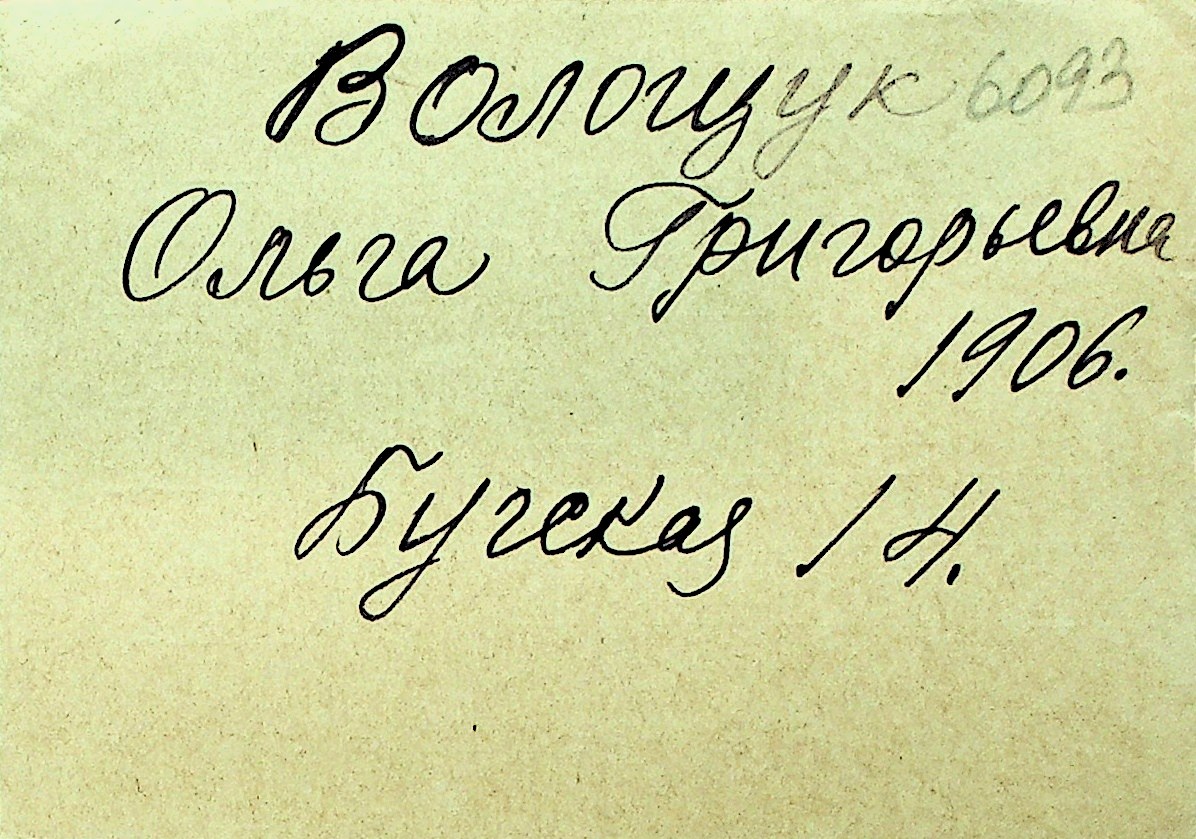 Волощук 6093
Ольга Григорьевна
1906.
Бугская 14.